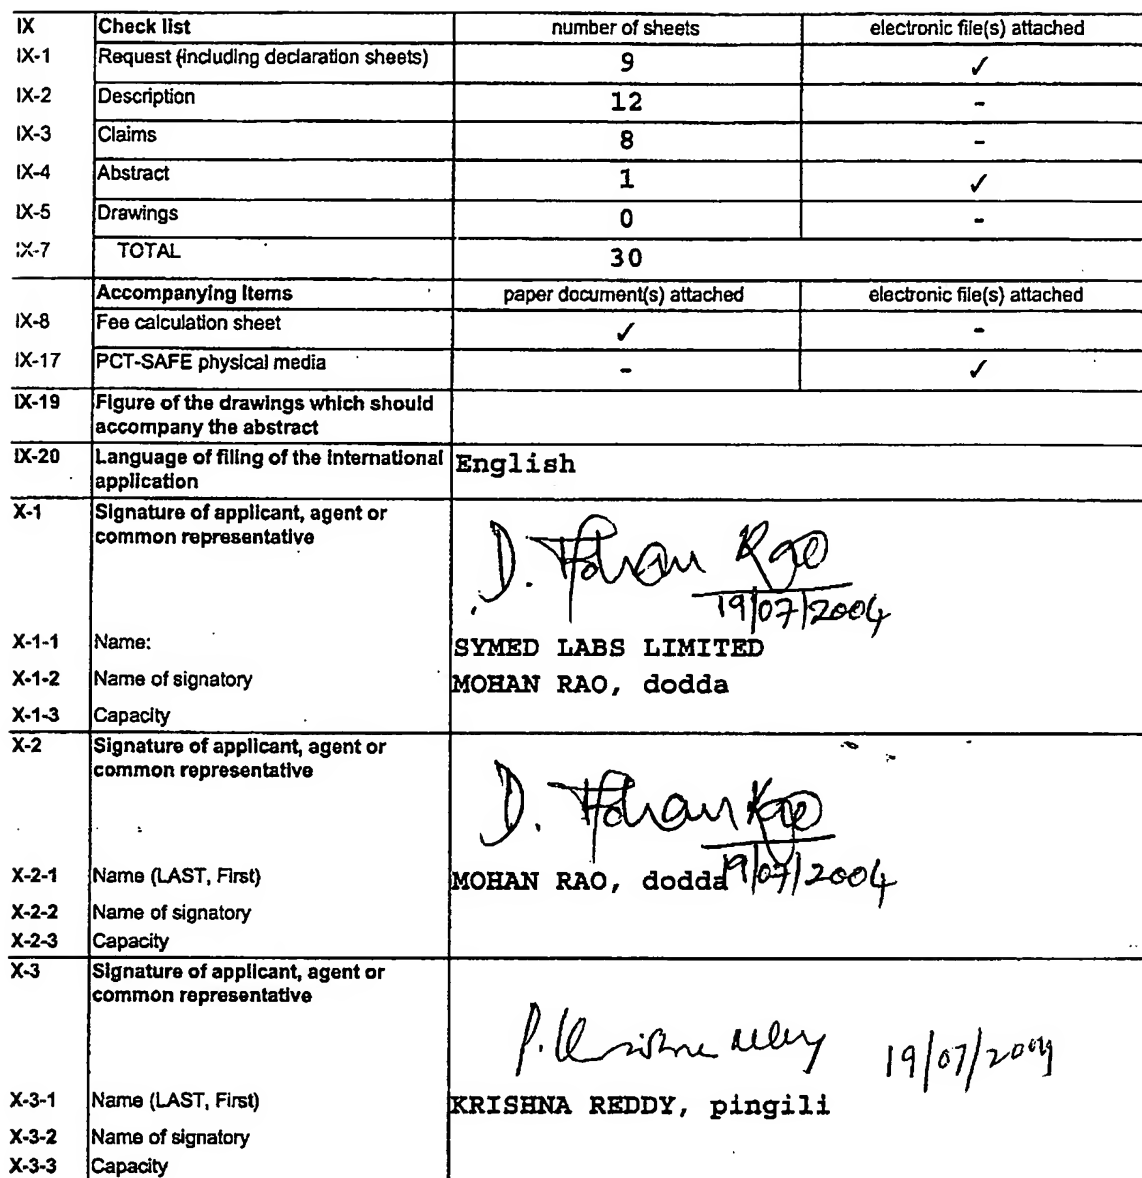 IX Check list number of sheets electronic file(s) attached
IX-1 Request (including declaration sheets) 9 ✓
IX-2 Description 12 -
IX-3 Claims 8 -
IX-4 Abstract 1 ✓
IX-5 Drawings 0 -
IX-7 TOTAL 30
Accompanying Items paper document(s) attached electronic file(s) attached
IX-8 Fee calculation sheet ✓ -
IX-17 PCT-SAFE physical media - ✓
IX-19 Figure of the drawings which should
accompany the abstract
IX-20 Language of filing of the international English
application
X-1 Signature of applicant, agent or
common representative
D. Mohan Rao
19/07/2004
X-1-1 Name: SYMED LABS LIMITED
X-1-2 Name of signatory MOHAN RAO, dodda
X-1-3 Capacity
X-2 Signature of applicant, agent or
common representative
D. Mohan Rao
19/07/2004
X-2-1 Name (LAST, First) MOHAN RAO, dodda
X-2-2 Name of signatory
X-2-3 Capacity
X-3 Signature of applicant, agent or
common representative
P. Krishna Reddy 19/07/2004
X-3-1 Name (LAST, First) KRISHNA REDDY, pingili
X-3-2 Name of signatory
X-3-3 Capacity